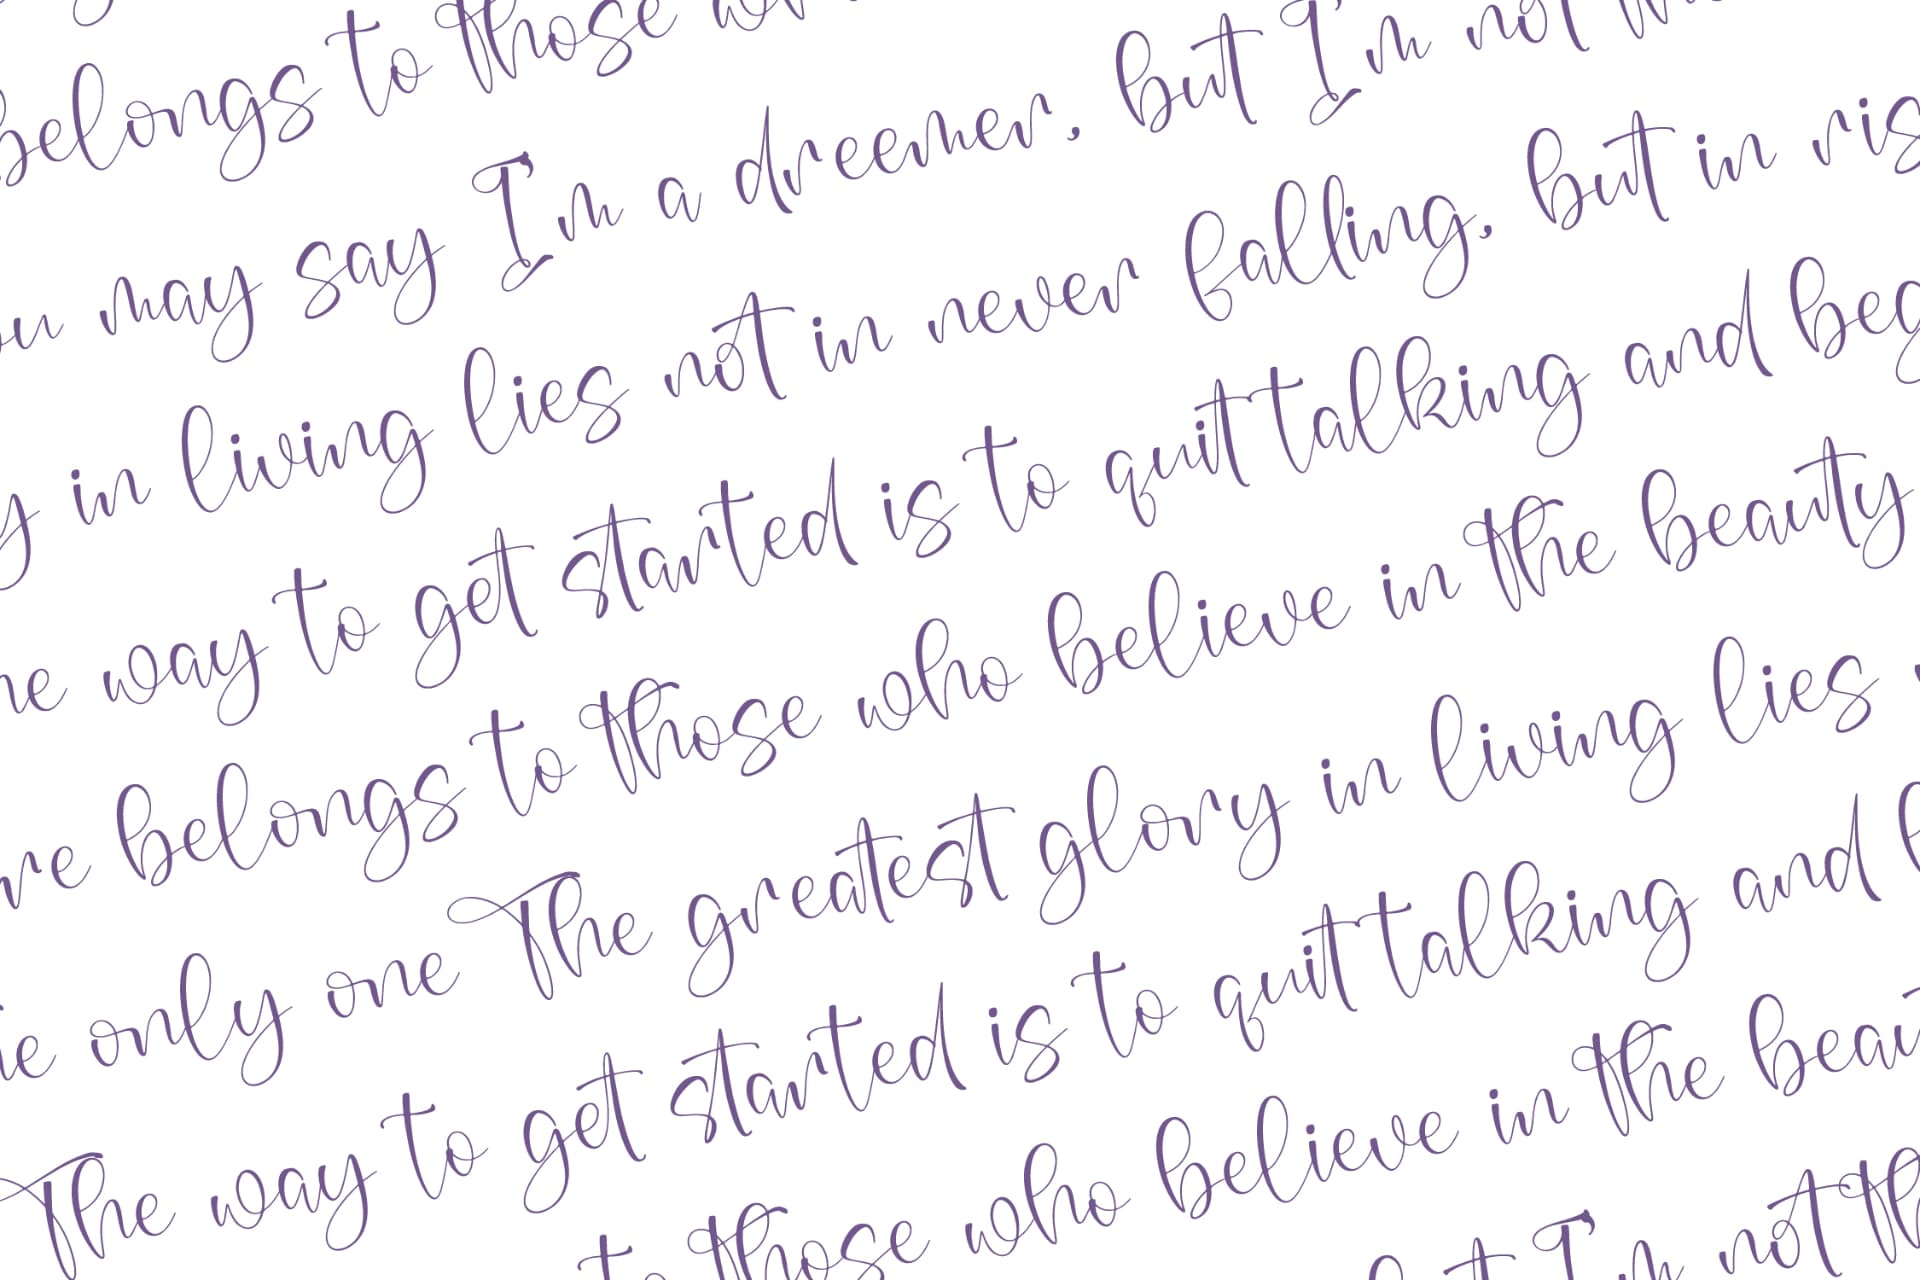 belongs to those
ou may say I'm a dreemer, but I'm not
y in living lies not in never falling, but in ris
he way to get started is to quit talking and beg
re belongs to those who believe in the beauty
ie only one The greatest glory in living lies
The way to get started is to quit talking and
to those who believe in the beau
I'm not th